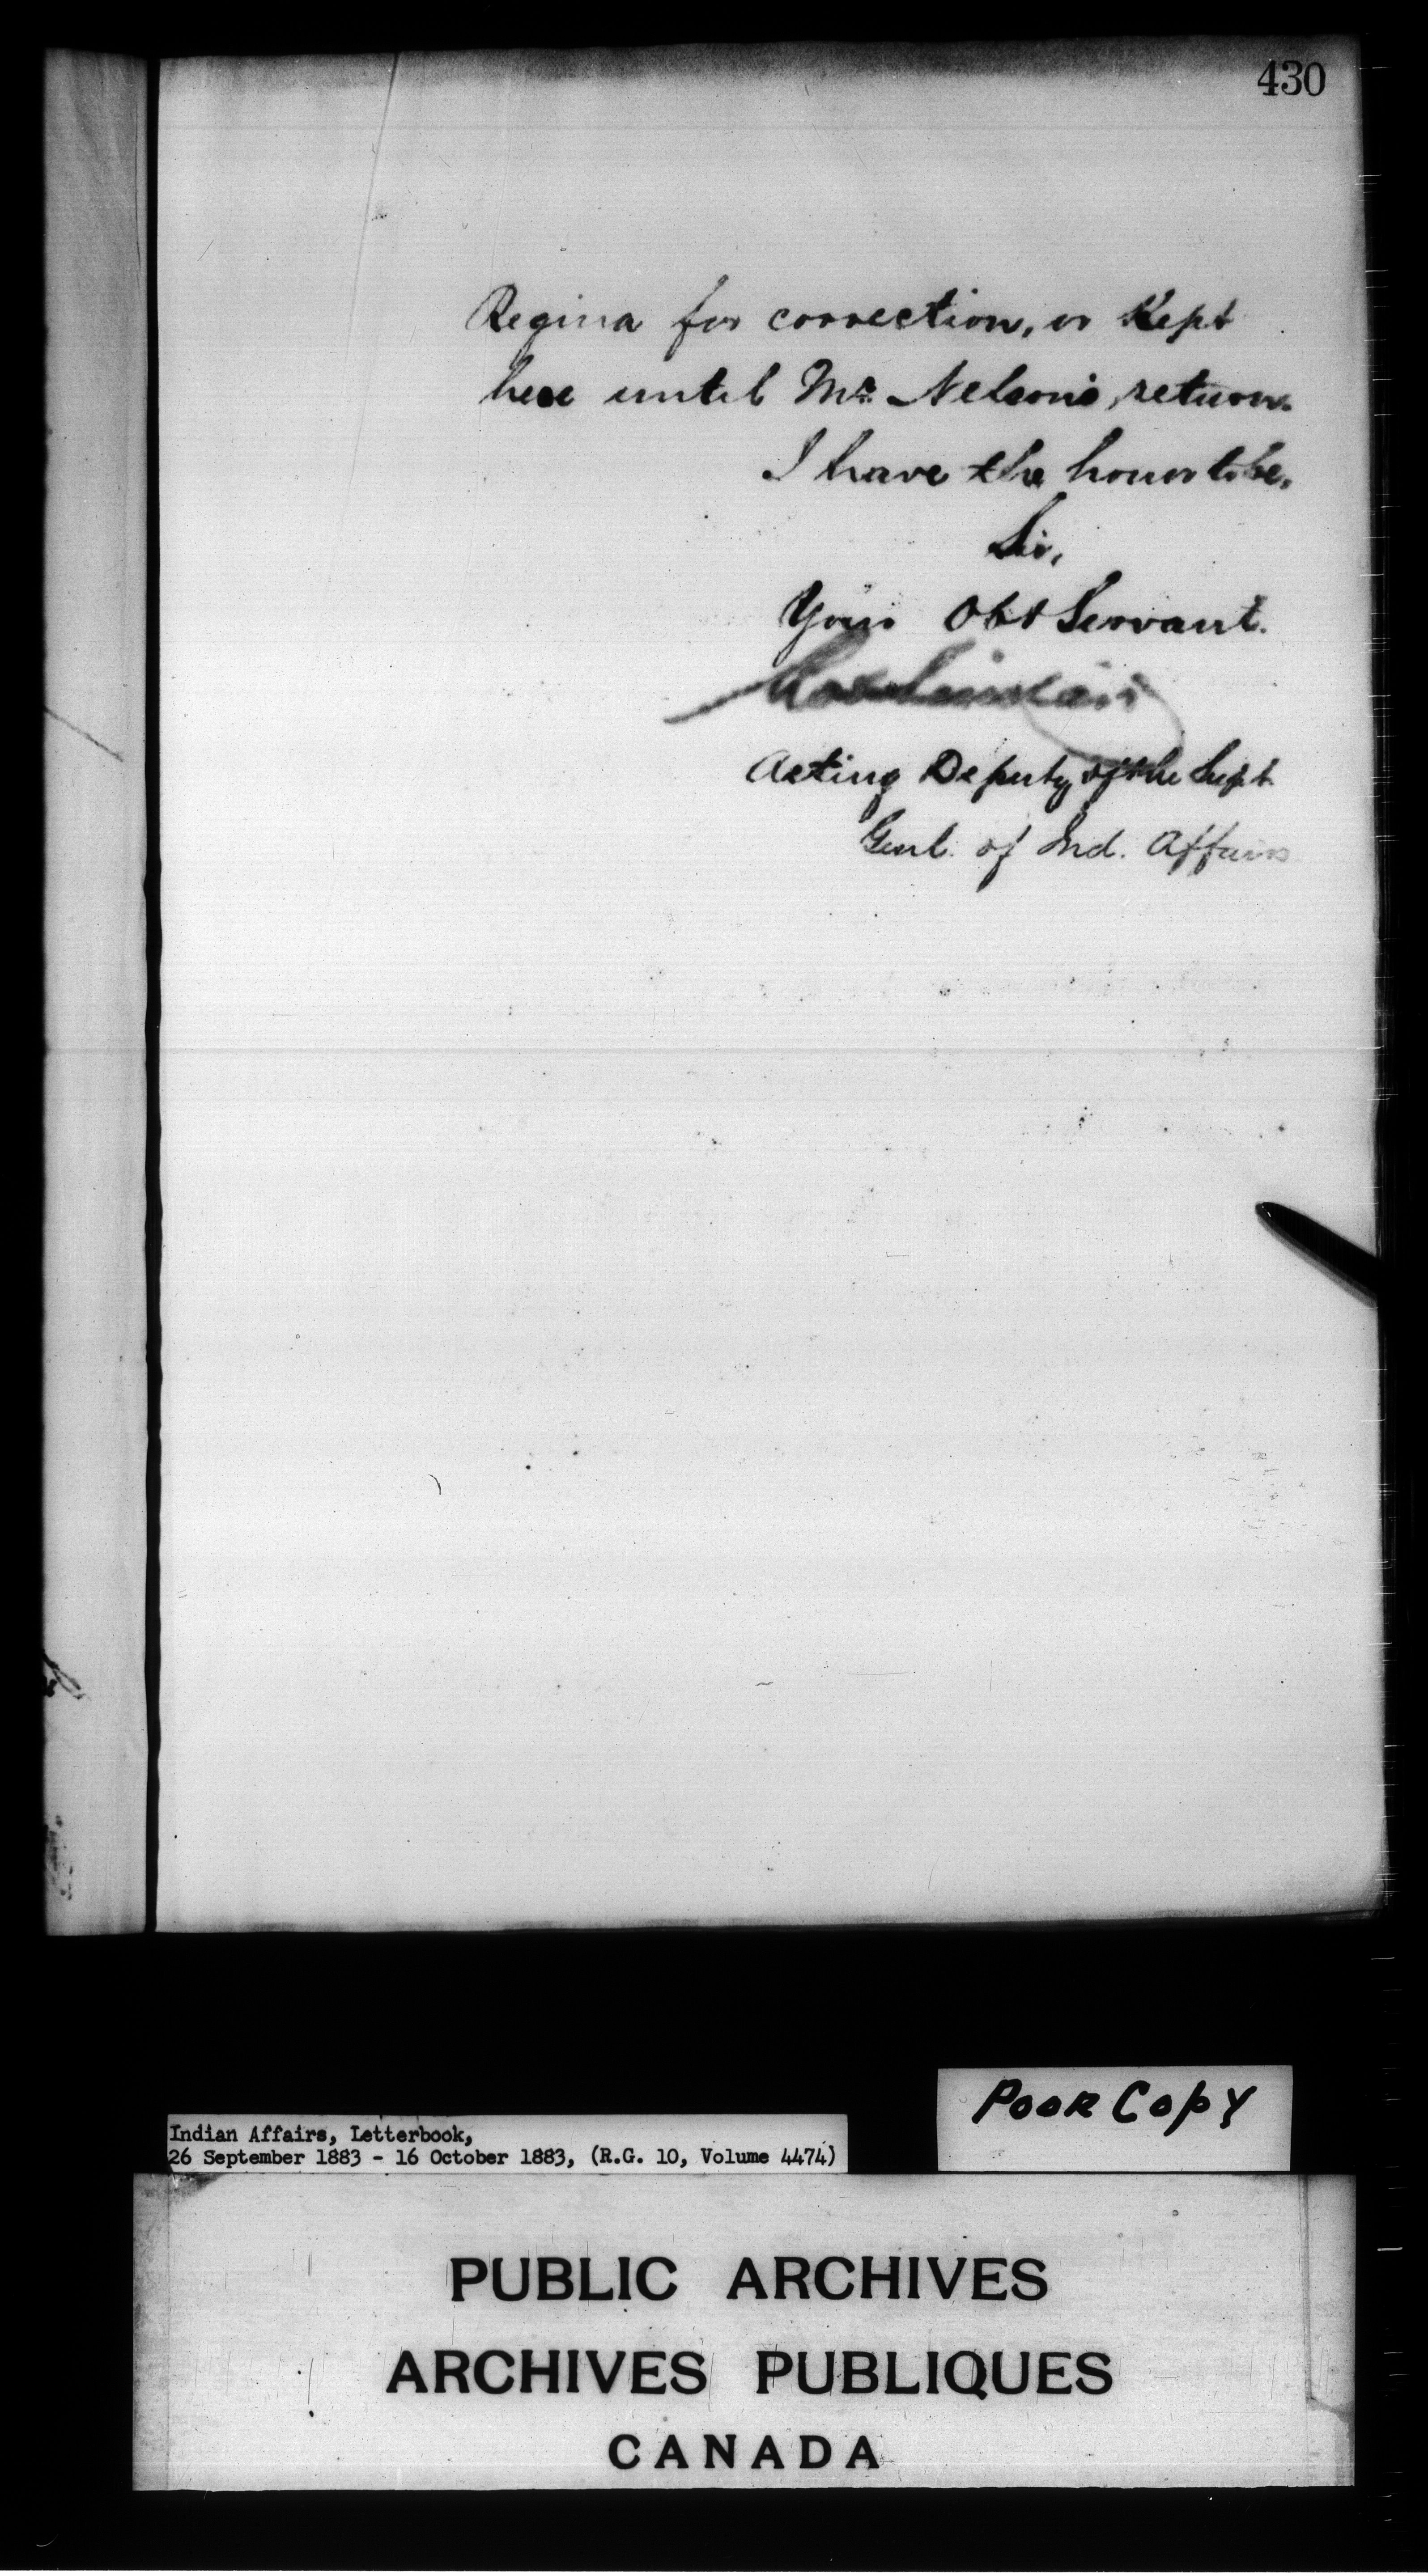 430
Regina for correction, or Kept
here until Mr. Nelson's return.
I have the honor to be,
Sir,
Your Obt Servant.
Acting Deputy of the Supt
Genl. of Ind. Affairs
Poor Copy
Indian Affairs, Letterbook,
26 September 1883 - 16 October 1883, (R.G. 10, Volume 4474)
PUBLIC ARCHIVES
ARCHIVES PUBLIQUES
CANADA